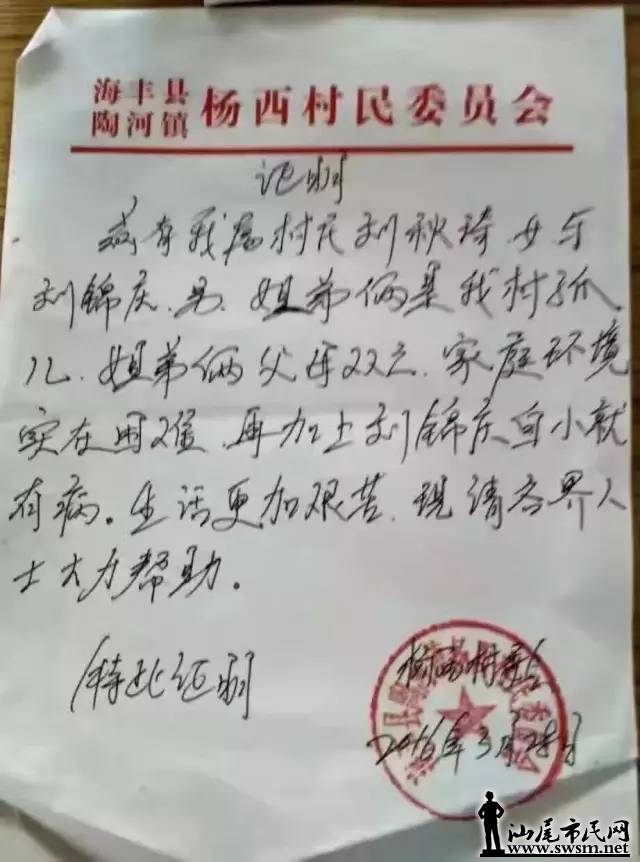 海丰县
陶河镇 杨西村民委员会
证明
兹有我属村民刘秋琦、女与
刘锦庆、男、姐弟俩是我村孤
儿、姐弟俩父母双亡、家庭环境
实在困难、再加上刘锦庆自小就
有病。生活更加艰苦、现请各界人
士大力帮助。
特此证明
杨西村委会
2016年3月28日
汕尾市民网
www.swsm.net